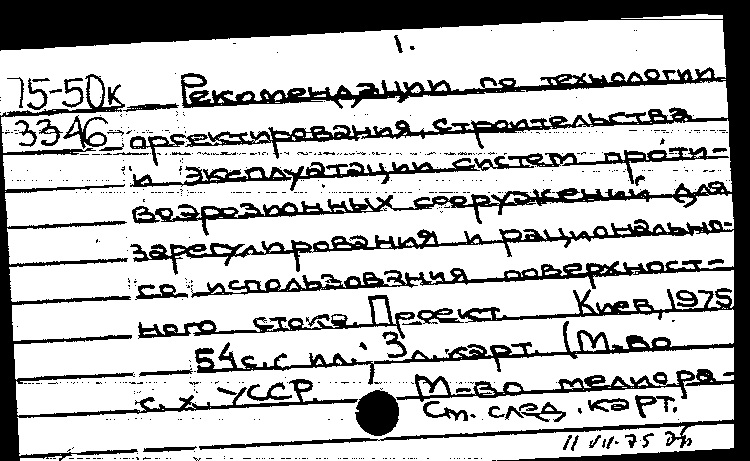 1.
75-50к Рекомендации по технологии
3346 проектирования, строительства
и эксплуатации систем проти-
воэрозионных сооружений для
зарегулирования и рационально-
го использования поверхност-
ного стока. Проект. Киев, 1975
54 с. с ил.; 3 л. карт. (М-во
с. х. УССР. М-во мелиора-
См. след. карт.
11 VII-75